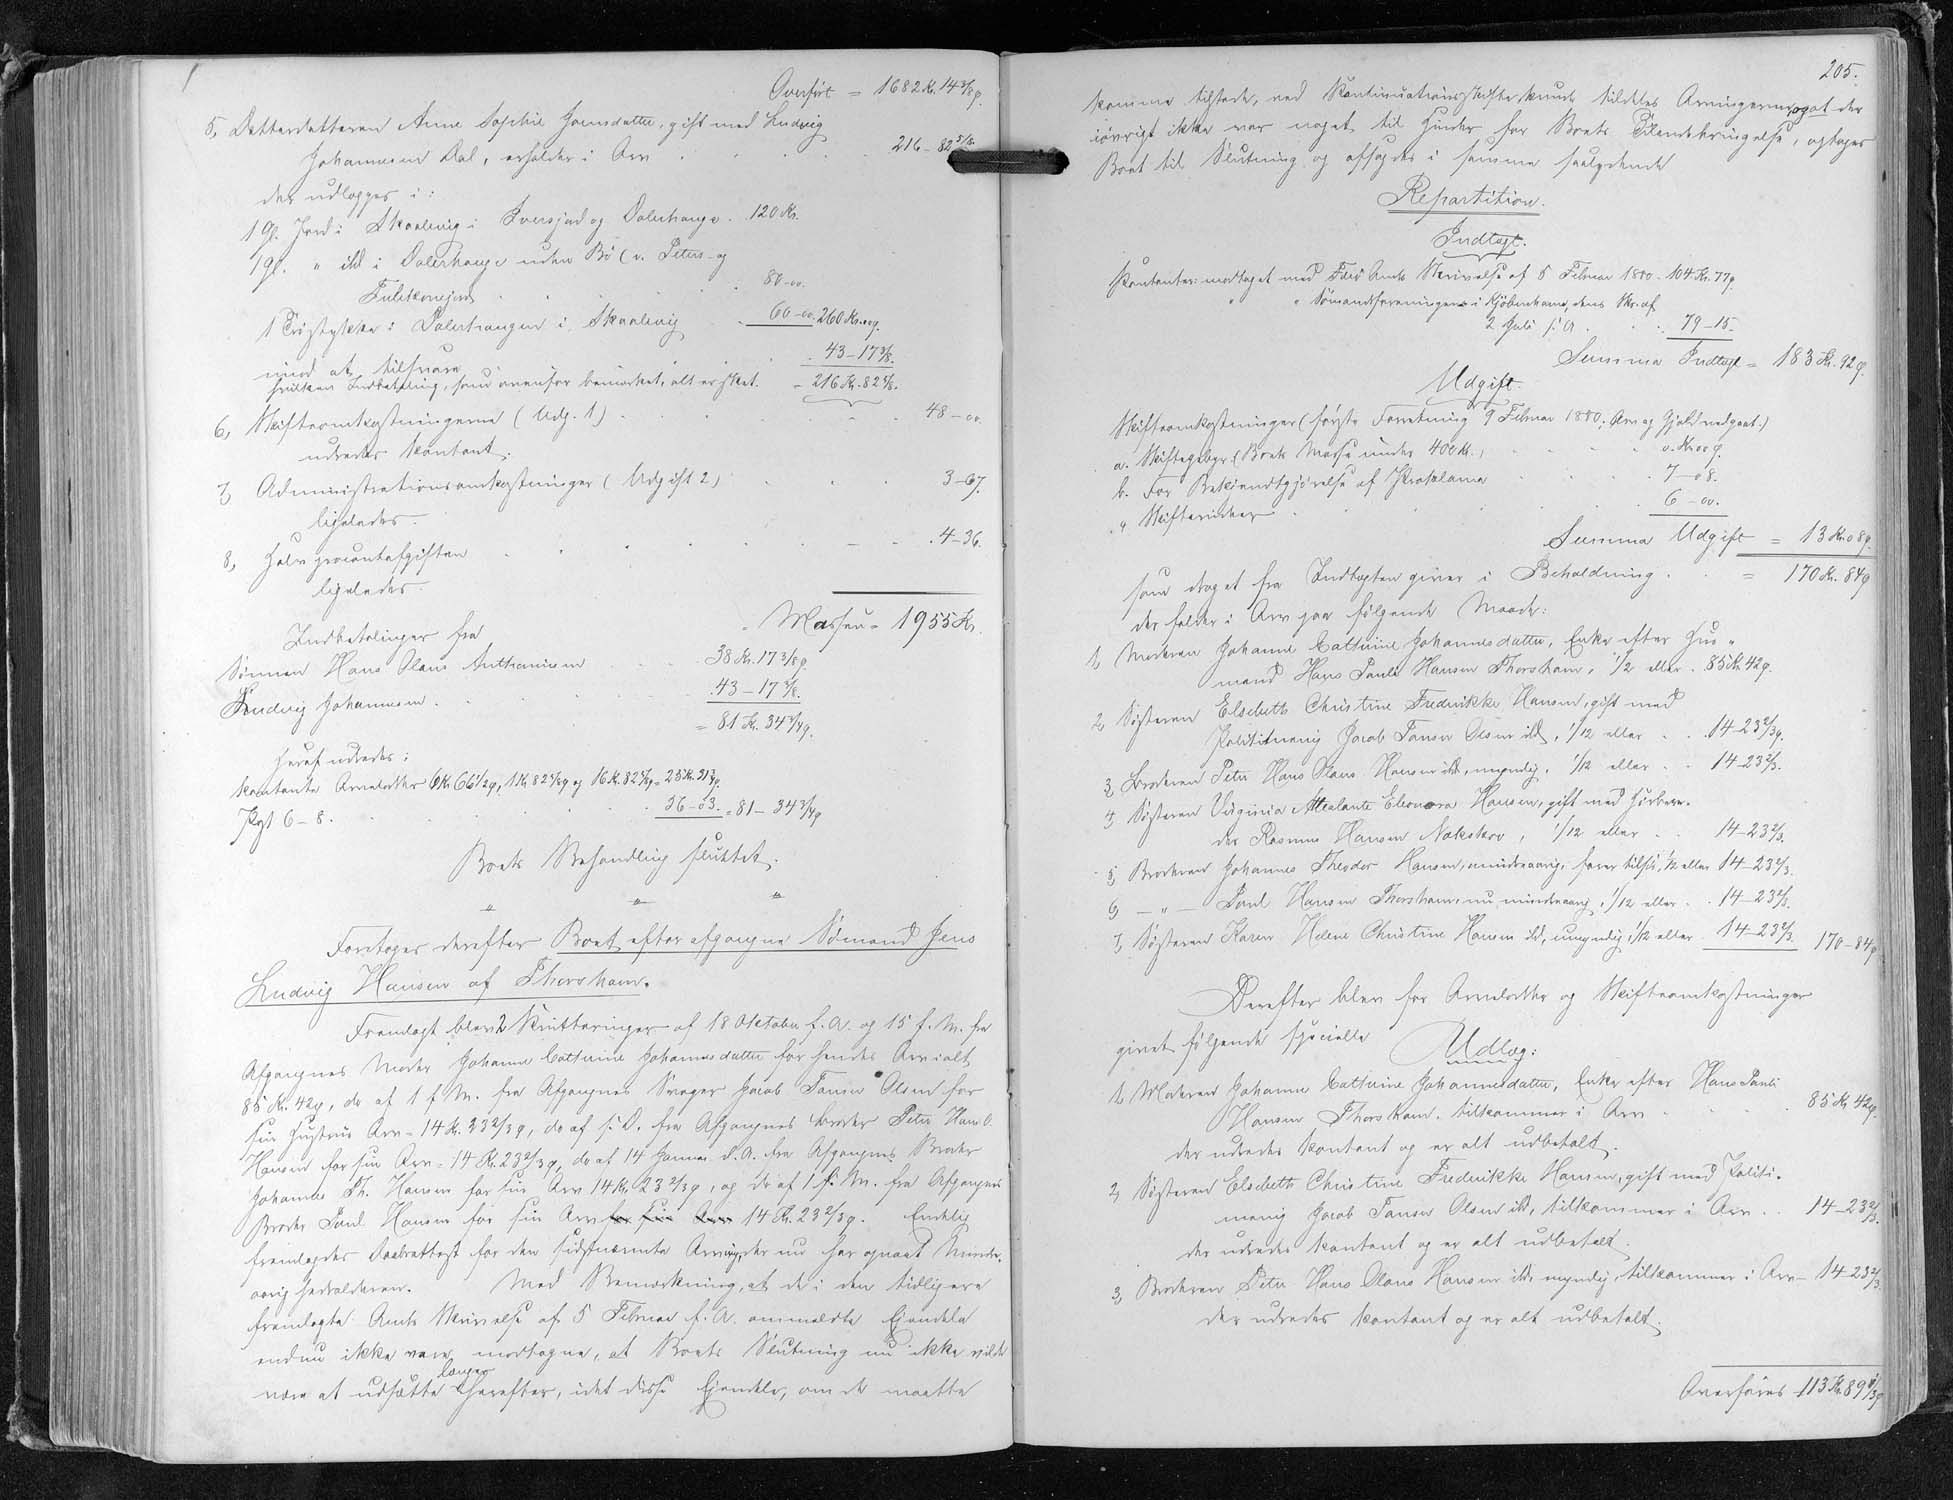 Overført = 1682 Kr. 14 3/8 ø.
5, Datterdatteren Anne Sophie Joensdatter, gift med Ludvig
Johannesen Dal, erholder i Arv 216 - 82 5/8.
der udlægges i:
1 Gl. Jord i Skaalevig i Dalerhauge . 120 Kr.
1 Gl. " ibd i Dalerhauge uden Bø (v. Peters- og
80 - 00.
1 i Dalerhaugen i Skaalevig 60 - 00. 260 Kr. 00 ø.
mod at tilsvare . 43 - 17 3/8.
hvilken Indbetaling, som ovenfor bemærket, alt er sket. = 216 Kr. 82 5/8.
6, Skifteomkostningerne (Udg. 1) 48 - 00.
udredes kontant.
7, Administrationsomkostninger (Udgift 2) 3 - 67.
ligeledes.
8, Halv procentafgiften . 4 - 36.
ligeledes.
Massen = 1955 Kr.
Indbetalinger fra
Sønnen Hans Olaus Anthoniesen 38 Kr. 17 3/8 ø.
Ludvig Johannesen . 43 - 17 3/8.
= 81 Kr. 34 3/4 ø.
Heraf udredes:
kontante Arvelodder 6 Kr. 66 1/2 ø, 1 Kr. 82 5/8 ø og 16 Kr. 82 5/8 ø = 25 Kr. 31 3/4 ø.
Post 6 - 8. 56 - 03. = 81 - 34 3/4 ø
Boets Behandling sluttet.
" " "
Foretoges derefter Boet efter afgangne Sømand Jens
Ludvig Hansen af Thorshavn.
Fremlagt blev 2 Kvitteringer af 18 Oktober f. A. og 15 f. M. fra
Afgangnes Moder Johanne Cathrine Johannesdatter for hendes Arv ialt
85 Kr. 42 ø, do af 1 f. M. fra Afgangnes Svoger Jacob Tausen Olsen for
sin Hustrus Arv = 14 Kr. 23 2/3 ø, do af s. D. fra Afgangnes Broder Peter Hans O.
Hansen for sin Arv = 14 Kr. 23 2/3 ø, do af 14 Januar d. A. fra Afgangnes Broder
Johannes Th. Hansen for sin Arv 14 Kr. 23 2/3 ø, og do af 1 f. M. fra Afgangnes
Broder Poul Hansen for sin Arv for sin Arv 14 Kr. 23 2/3 ø. Endelig
fremlagdes Daabsattest for den sidstnævnte Arving, der nu har opnaaet Mindre-
aarighedsalderen. Med Bemærkning, at de i den tidligere
fremlagte Amts Skrivelse af 5 Februar f. A. ommeldte Ejendele
endnu ikke vare modtagne, at Boets Slutning nu ikke vilde
være at udsætte længer herefter, idet disse Ejendele, om de maatte
205.
komme tilstede, ved Kontinuationsskifte kunde tildeles Arvingerne, og at der
iøvrigt ikke var noget til Hinder for Boets Tilendebringelse, optoges
Boet til Slutning og afsagdes i samme saalydende
Repartition.
Indtægt.
Kontanter: modtaget med Færø Amts Skrivelse af 5 Februar 1880 - 104 Kr. 77 ø.
" " Sømandsforeningen i Kjøbenhavn, dens Skr. af
2 Juli s. A . 79 - 15.
Summa Indtægt = 183 Kr. 92 ø.
Udgift.
Skifteomkostninger (første Forretning 9 Februar 1880; Arv og Gjæld vedgaaet.)
a. Skiftegebyr (Boets Masse under 400 Kr.) 0. Kr. 00 ø.
b. For Bekjendtgjørelse af Proklama 7 - 08.
c. Skiftevidner 6 - 00.
Summa Udgift = 13 Kr. 08 ø.
som draget fra Indtægten giver i Beholdning = 170 Kr. 84 ø
der falder i Arv paa følgende Maade:
1, Moderen Johanne Cathrine Johannesdatter, Enke efter Hus-
mand Hans Pauli Hansen Thorshavn, 1/2 eller . 85 Kr. 42 ø.
2, Søsteren Elsebeth Christine Frederikke Hansen, gift med
Politimenig Jacob Tausen Olsen ibd, 1/12 eller . . 14 - 23 2/3 ø.
3, Broderen Peter Hans Olaus Hansen ibd., myndig, 1/12 eller . . 14 - 23 2/3.
4, Søsteren Virginia Attalante Eleonora Hansen, gift med
Rasmus Hansen Nakskov, 1/12 eller . . 14 - 23 2/3.
5, Broderen Johannes Theodor Hansen, mindreaarig, farer tilsøs, 1/12 eller 14 - 23 2/3.
6, - " - Poul Hansen Thorshavn, nu mindreaarig, 1/12 eller . . 14 - 23 2/3.
7, Søsteren Karen Helene Christine Hansen ibd, umyndig, 1/12 eller 14 - 23 2/3. 170 - 84 ø
Derefter blev for Arvelodder og Skifteomkostninger
givet følgende specielle Udlæg:
1, Moderen Johanne Cathrine Johannesdatter, Enke efter Hans Pauli
Hansen Thorshavn, tilkommer i Arv 85 Kr. 42 ø.
der udredes kontant og er alt udbetalt.
2, Søsteren Elsebeth Christine Frederikke Hansen, gift med Politi-
menig Jacob Tausen Olsen ibd, tilkommer i Arv . . 14 - 23 2/3.
der udredes kontant og er alt udbetalt.
3, Broderen Peter Hans Olaus Hansen ibd, myndig, tilkommer i Arv - 14 - 23 2/3.
der udredes kontant og er alt udbetalt.
Overføres 113 Kr. 89 1/3 ø